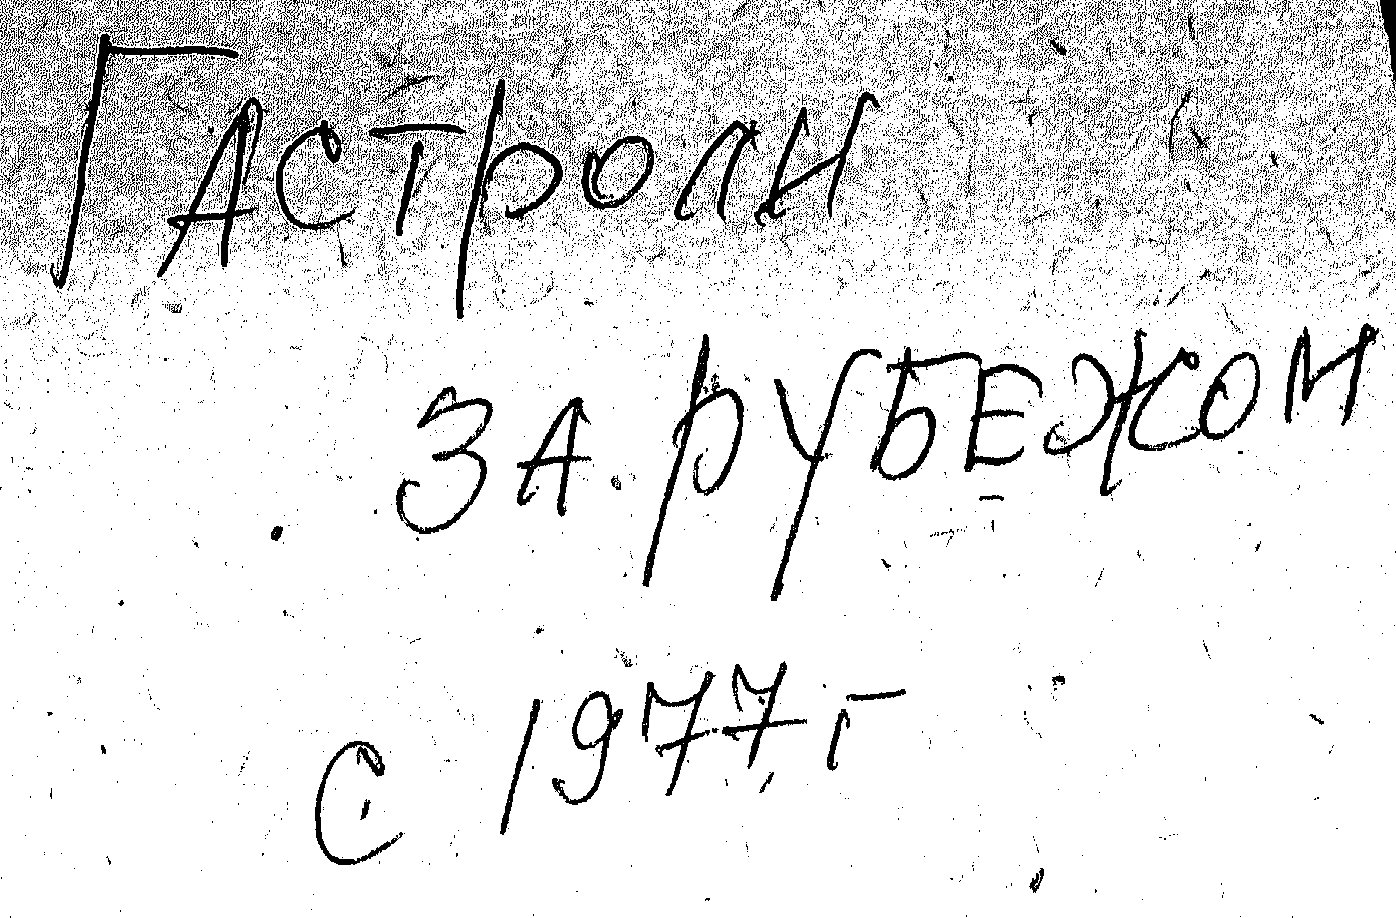 Гастроли
за рубежом
с 1977 г